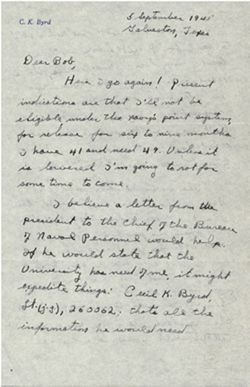 C. K. Byrd
5 September 1945
Galveston, Texas
Dear Bob,
Here I go again! Present
indications are that I'll not be
eligible under the navy's point system,
for release for six to nine months.
I have 41 and need 49. Unless it
is lowered I'm going to rot for
some time to come.
I believe a letter from the
president to the Chief of the Bureau
of Naval Personnel would help.
If he would state that the
University has need of me, it might
expedite things. Cecil K. Byrd,
Lt. (j.g.), 260062. thats all the
information he would need